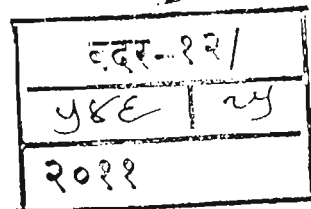 वदर-१२/
५४६ २५
२०११